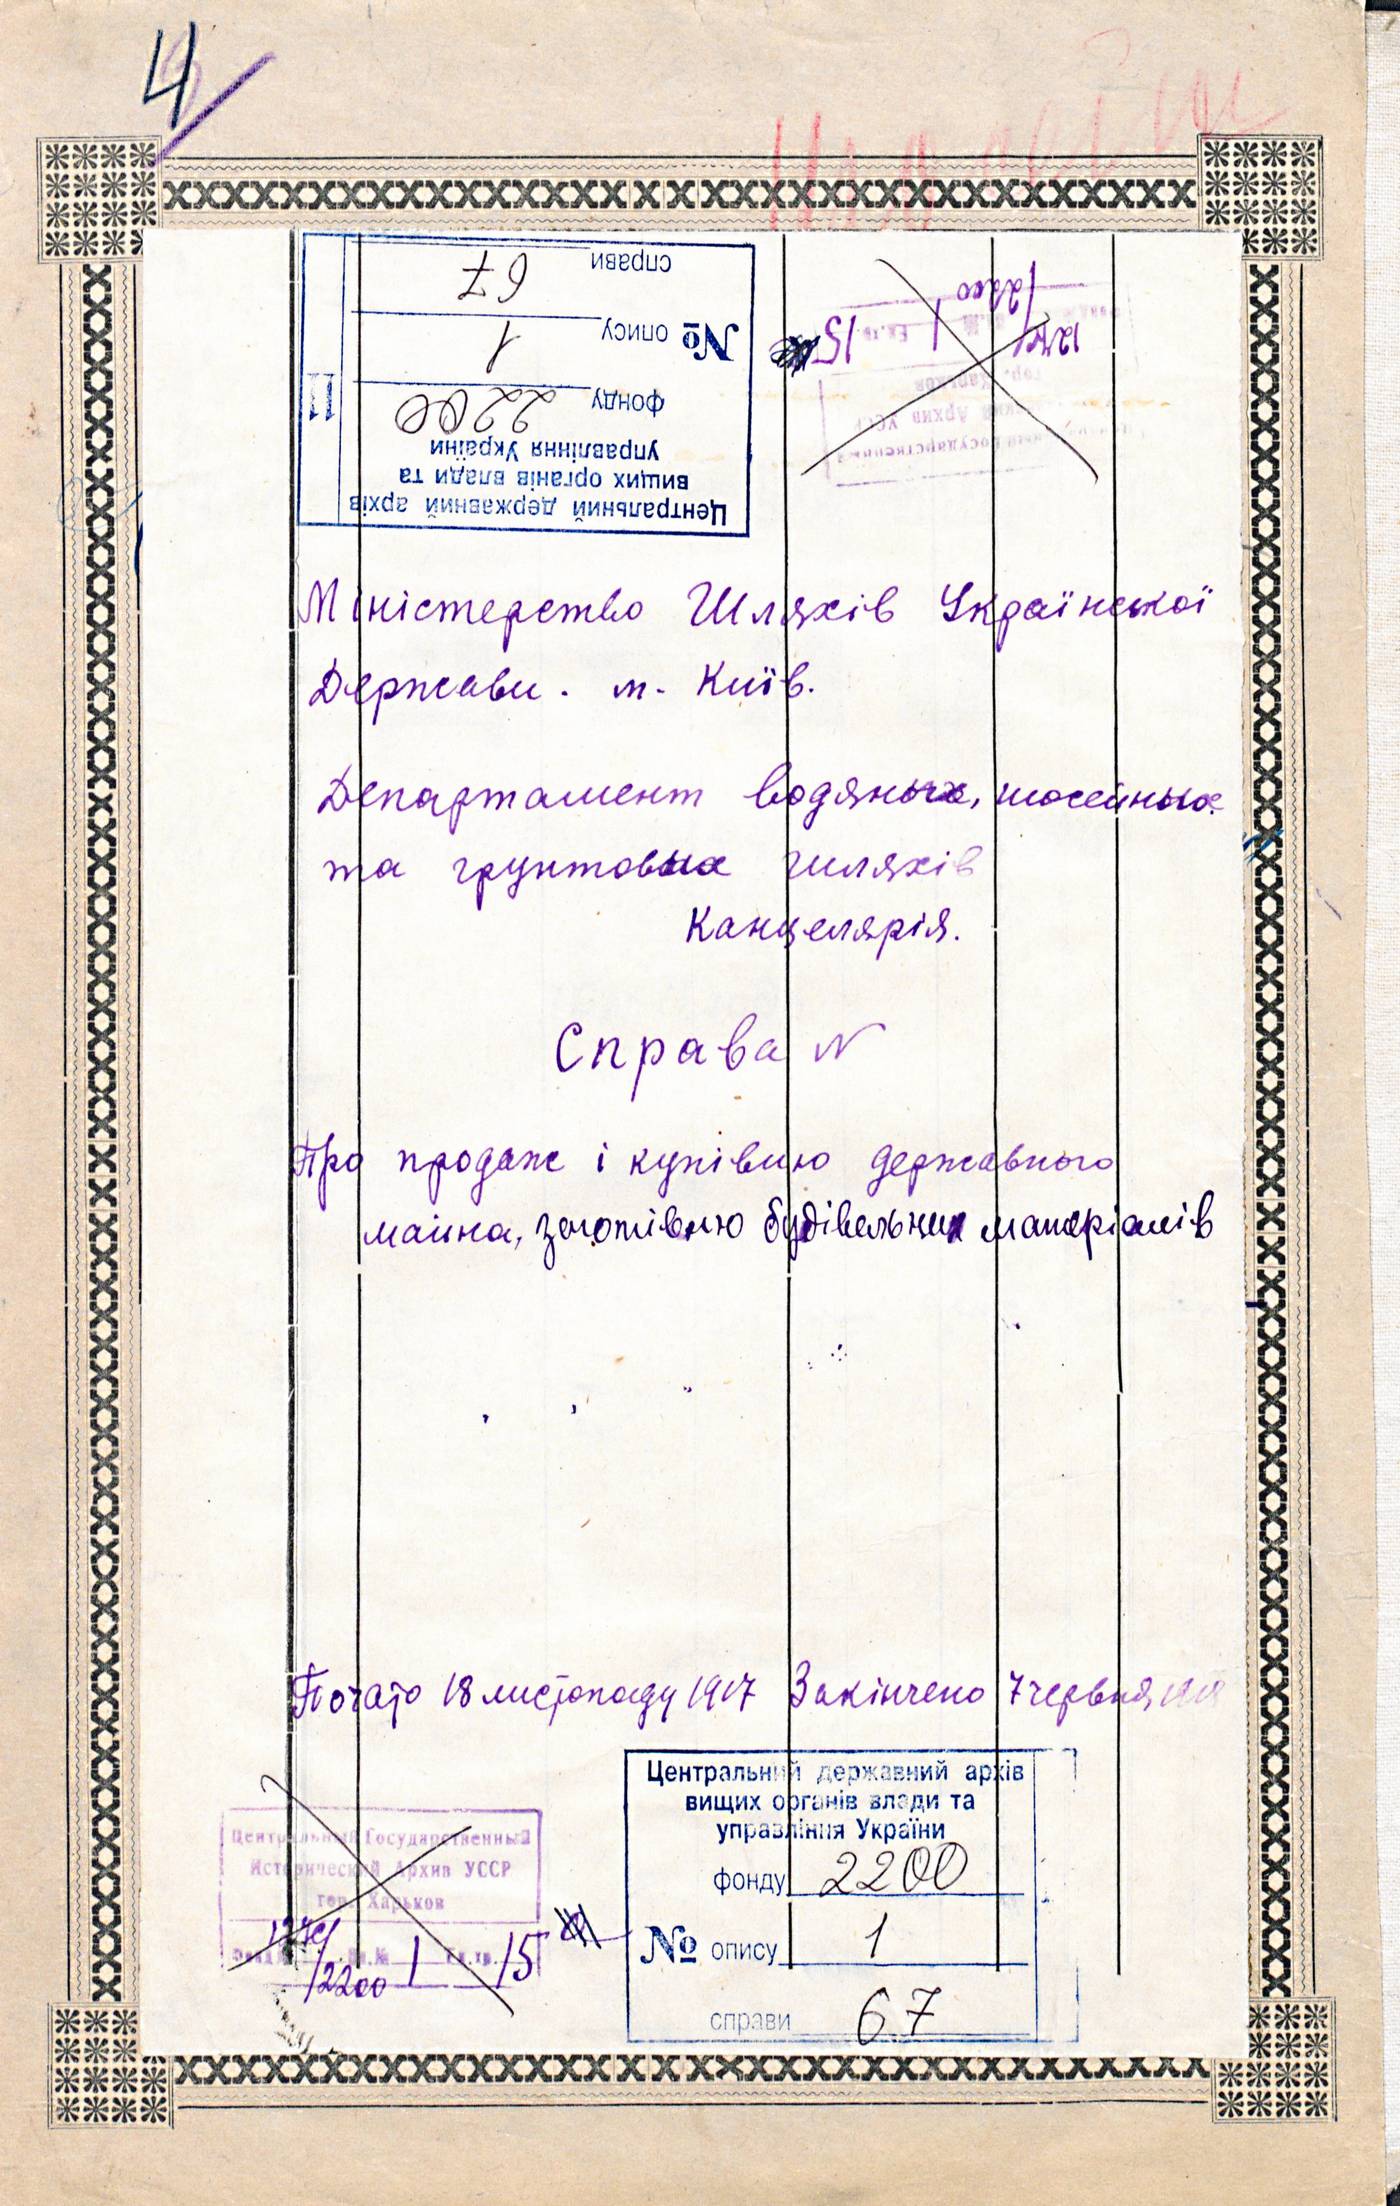 4
Центральний державний архів
вищих органів влади та
управління України
фонду 2200
№ опису 1
справи 67
11
Государственный
Архив УССР
гор. Харьков
/2200 1 15
Міністерство Шляхів Української
Держави. м. Київ.
Департамент водяных, шосейных
та грунтовых шляхів
Канцелярія.
Справа N
Про продаж і купівлю державного
майна, заготівлю будівельних матеріалів
Почато 18 листопаду 1917 Закінчено 7 червня
Центральный Государственный
Исторический Архив УССР
гор. Харьков
Фонд № Оп.№ 1 Ед.хр. 15
/2200
Центральний державний архів
вищих органів влади та
управління України
фонду 2200
№ опису 1
справи 67